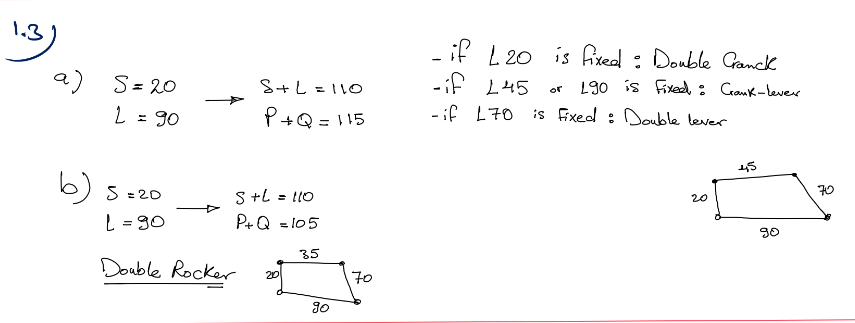 1.3)
a) S = 20
L = 90
S + L = 110
P + Q = 115
- if L20 is fixed : Double Cranck
- if L45 or L90 is fixed : Crank-lever
- if L70 is fixed : Double lever
45
20
70
90
b) S = 20
L = 90
S + L = 110
P + Q = 105
Double Rocker
35
20
70
90